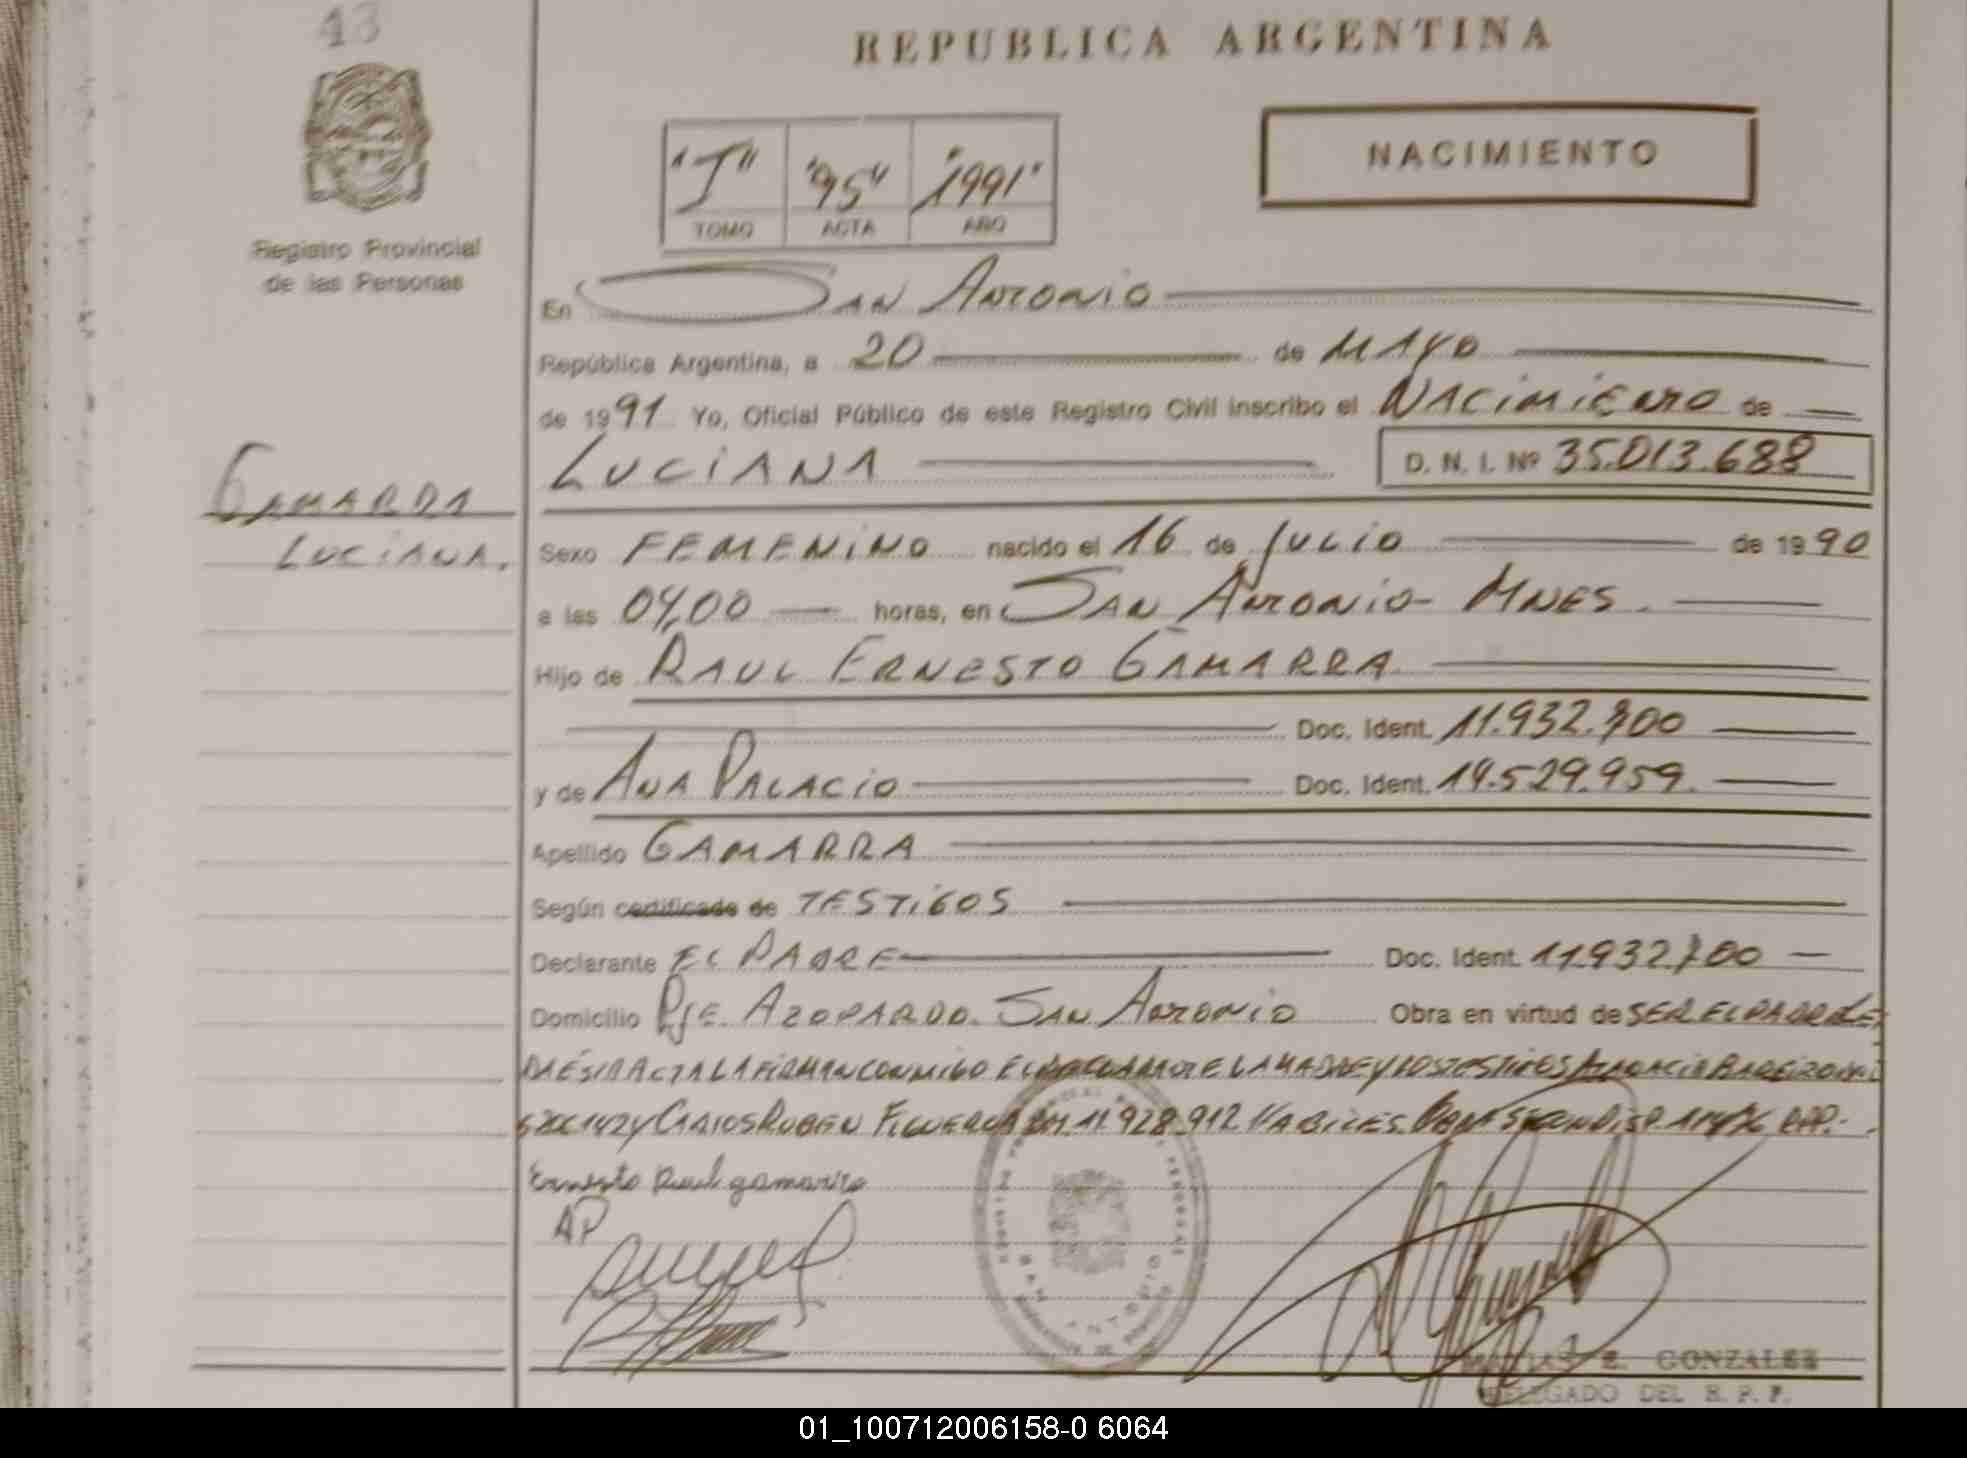 43
REPUBLICA ARGENTINA
NACIMIENTO
"I" "95" "1991"
TOMO ACTA AÑO
Registro Provincial
de las Personas
En San Antonio
República Argentina, a 20 de MAYO
de 1991 Yo, Oficial Público de este Registro Civil inscribo el Nacimiento de
LUCIANA D. N. I. Nº 35.013.688
GAMARRA
LUCIANA.
Sexo FEMENINO nacido el 16 de JULIO de 1990
a las 04,00 horas, en SAN ANTONIO - MNES.
Hijo de RAUL ERNESTO GAMARRA
Doc. Ident. 11.932.700
y de ANA PALACIO Doc. Ident. 14.529.959.
Apellido GAMARRA
Según certificado de TESTIGOS
Declarante EL PADRE Doc. Ident. 11.932.700
Domicilio Pje. AZOPARDO. SAN ANTONIO Obra en virtud de SER EL PADRE LE
IDA ÉSTA ACTA LA FIRMAN CONMIGO EL DECLARANTE LA MADRE Y LOS TESTIGOS
Y CARLOS RUBEN FIGUEROA 11.928.912 HABILES.
Ernesto Raul gamarra
AP
SAN ANTONIO
MATIAS E. GONZALEZ
DELEGADO DEL R. P. P.
01_100712006158-0 6064